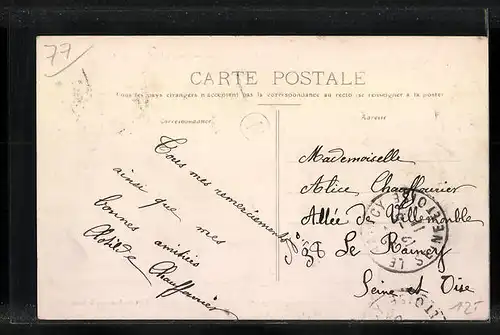 77
CARTE POSTALE
Tous les pays étrangers n'acceptent pas la correspondance au recto (se renseigner à la poste)
Correspondance
Adresse
Tous mes remerciements
ainsi que mes
bonnes amitiés
Clotilde Chauffourier
Mademoiselle
Alice Chauffourier
Allée de Villemomble
Le Raincy
Seine et Oise
LE RAINCY
SEINE ET OISE